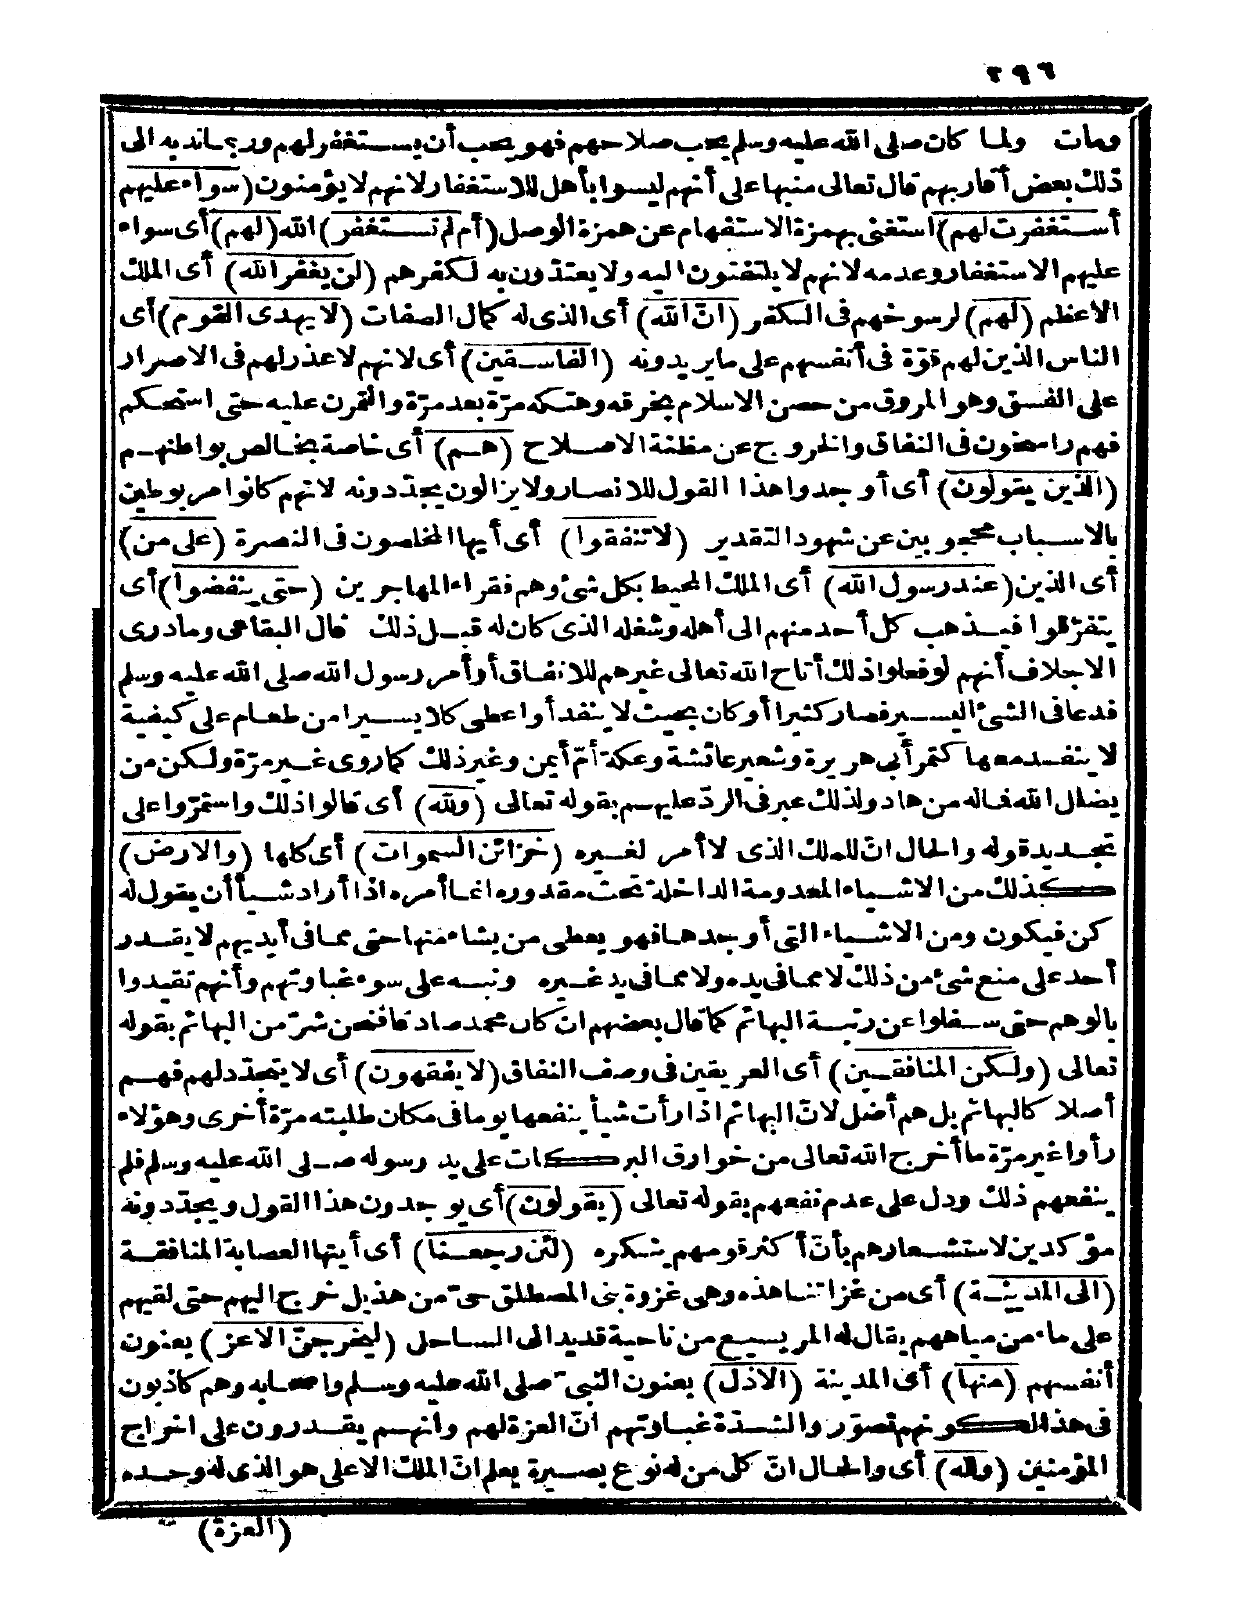 ٢٩٦
ومات ولما كان صلى الله عليه وسلم يحب صلاحهم فهو يحب أن يستغفر لهم وربما ندبه الى
ذلك بعض أقاربهم قال تعالى منبها على أنهم ليسوا بأهل للاستغفار لانهم لا يؤمنون (سواء عليهم
أستغفرت لهم) استغنى بهمزة الاستفهام عن همزة الوصل (أم لم تستغفر) الله (لهم) أى سواء
عليهم الاستغفار وعدمه لانهم لا يلتفتون اليه ولا يعتدّون به لكفرهم (لن يغفر الله) أى الملك
الاعظم (لهم) لرسوخهم فى الكفر (انّ الله) أى الذى له كمال الصفات (لا يهدى القوم) أى
الناس الذين لهم قوّة فى أنفسهم على ما يريدونه (الفاسقين) أى لانهم لا عذر لهم فى الاصرار
على الفسق وهو المروق من حصن الاسلام بخرقه وهتكه مرّة بعد مرّة والتمرن عليه حتى استحكم
فهم راسخون فى النفاق والخروج عن مظنة الاصلاح (هم) أى خاصة بخالص بواطنهم
(الذين يقولون) أى أوجدوا هذا القول للانصار ولا يزالون يجدّدونه لانهم كانوا مربوطين
بالاسباب محجوبين عن شهود التقدير (لا تنفقوا) أى أيها المخلصون فى النصرة (على من)
أى الذين (عند رسول الله) أى الملك المحيط بكل شئ وهم فقراء المهاجرين (حتى ينفضوا) أى
يتفرّقوا فيذهب كل أحد منهم الى أهله وشغله الذى كان له قبل ذلك قال البقاعى وما درى
الاجلاف أنهم لو فعلوا ذلك أتاح الله تعالى غيرهم للانفاق أو أمر رسول الله صلى الله عليه وسلم
فدعا فى الشئ اليسير فصار كثيرا أو كان بحيث لا ينفد أو أعطى كلا يسيرا من طعام على كيفية
لا ينفد معها كتمر أبى هريرة وشعير عائشة وعكة أمّ أيمن وغير ذلك كما روى غير مرّة ولكن من
يضلل الله فماله من هاد ولذلك عبر فى الردّ عليهم بقوله تعالى (ولله) أى قالوا ذلك واستمرّوا على
تجديد قوله والحال انّ للملك الذى لا أمر لغيره (خزائن السموات) أى كلها (والارض)
كذلك من الاشياء المعدومة الداخلة تحت مقدوره انما أمره اذا أراد شيأ أن يقول له
كن فيكون ومن الاشياء التى أوجدها فهو يعطى من يشاء منها حتى مما فى أيديهم لا يقدر
أحد على منع شئ من ذلك لا مما فى يده ولا مما فى يد غيره ونبه على سوء غباوتهم وأنهم تقيدوا
بالوهم حتى سفلوا عن رتبة البهائم كما قال بعضهم ان كان محمد صادقا فنحن شرّ من البهائم بقوله
تعالى (ولكن المنافقين) أى العريقين فى وصف النفاق (لا يفقهون) أى لا يتجدّد لهم فهم
أصلا كالبهائم بل هم أضل لانّ البهائم اذا رأت شيأ ينفعها يوما فى مكان طلبته مرّة أخرى وهؤلاء
رأوا غير مرّة ما أخرج الله تعالى من خوارق البركات على يد رسوله صلى الله عليه وسلم فلم
ينفعهم ذلك ودل على عدم نفعهم بقوله تعالى (يقولون) أى يوجدون هذا القول ويجدّدونه
مؤكدين لاستشعارهم بأنّ أكثر قومهم ينكره (لئن رجعنا) أى أيتها العصابة المنافقة
(الى المدينة) أى من غزاتنا هذه وهى غزوة بنى المصطلق حىّ من هذيل خرج اليهم حتى لقيهم
على ماء من مياههم يقال له المريسيع من ناحية قديد الى الساحل (ليخرجنّ الاعز) يعنون
أنفسهم (منها) أى المدينة (الاذل) يعنون النبىّ صلى الله عليه وسلم وأصحابه وهم كاذبون
فى هذا لكونهم تصوّر والشدّة غباوتهم انّ العزة لهم وانهم يقدرون على اخراج
المؤمنين (ولله) أى والحال انّ كل من له نوع بصيرة يعلم انّ الملك الاعلى هو الذى له وحده
(العزة)